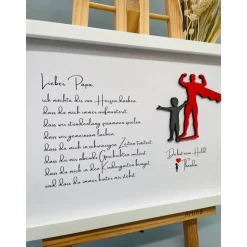 Lieber Papa,
ich möchte dir von Herzen danken,
dass du mich immer aufmunterst,
dass wir stundenlang zusammen spielen,
dass wir gemeinsam lachen,
dass du mich in schwierigen Zeiten tröstest,
dass du mir abends Geschichten vorliest,
dass du mich in den Kindergarten bringst
und dass du immer hinter mir stehst.
Du bist mein Held